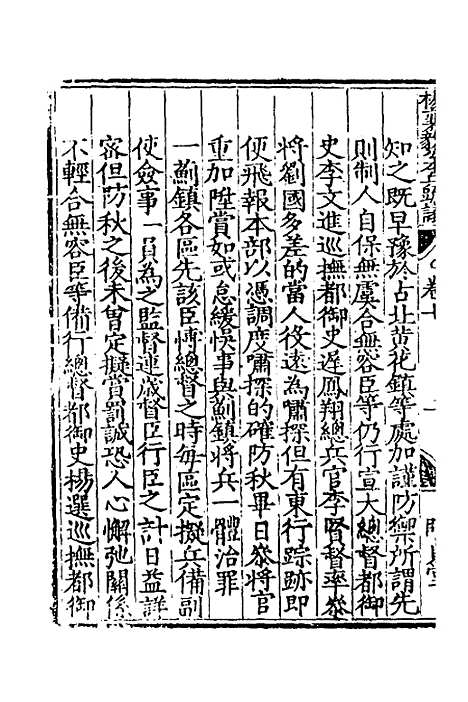 知之既早豫於古北黄花鎮等處加謹防禦所謂先
則制人自保無虞合無容臣等仍行宣大總督都御
史李文進巡撫都御史遲鳳翔總兵官李賢督率叅
將劉國多差的當人役遠為嘯探但有東行踪跡即
便飛報本部以憑調度嘯探的確防秋畢日叅將官
重加陞賞如或怠緩悞事與薊鎮將兵一體治罪
一薊鎮各區先該臣博總督之時每區定擬兵備副
使僉事一員為之監督連歲督臣行臣之計日益詳
密但防秋之後未曾定擬賞罰誠恐人心懈弛關係
不輕合無容臣等備行總督都御史楊選巡撫都御
卷十